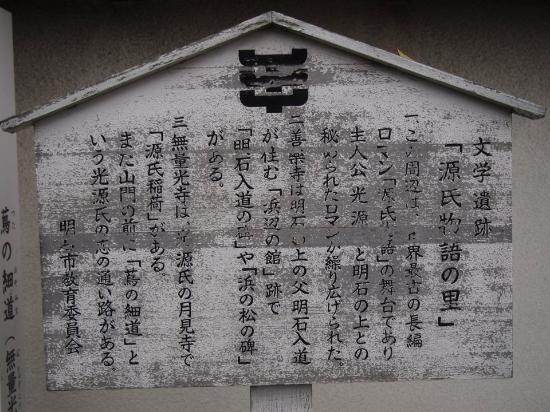 文学遺跡
「源氏物語の里」
一この周辺は、界最古の長編
ロマン「源氏語」の舞台であり
主人公光源と明石の上との
秘められたロマンが繰り広げられた。
二善楽寺は明石の上の父明石入道
が住む「浜辺の館」跡で
「明石入道の碑」や「浜の松の碑」
がある。
三無量光寺は、源氏の月見寺で
「源氏稲荷」がある。
また山門の前に「蔦の細道」と
いう光源氏の恋の通い路がある。
明石市教育委員会
蔦の細道(無量光